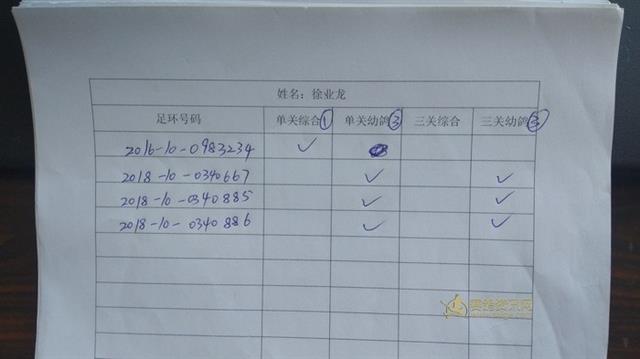 姓名：徐业龙
足环号码 单关综合① 单关幼鸽③ 三关综合 三关幼鸽③
2016-10-0983234 ✓
2018-10-0340667 ✓ ✓
2018-10-0340885 ✓ ✓
2018-10-0340886 ✓ ✓